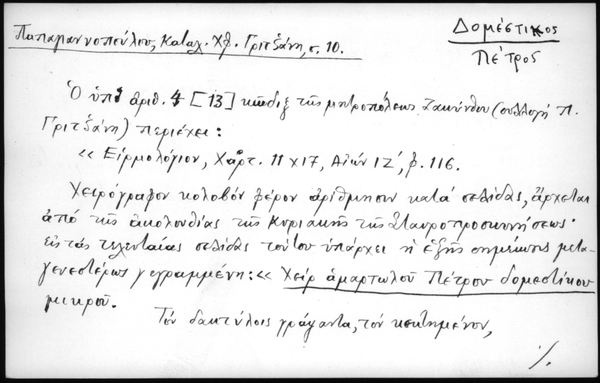 Παπαγιαννοπούλου, Καταλ. Χφ. Γριτσάνη, σ. 10.
Δομέστικος
Πέτρος
Ὁ ὑπ' ἀριθ. 4 [13] κῶδιξ τῆς μητροπόλεως Ζακύνθου (συλλογή Π.
Γριτσάνη) περιέχει:
« Εἱρμολόγιον, Χάρτ. 11 χ 17, Αἰών ΙΖ', φ. 116.
Χειρόγραφον κολοβόν φέρον ἀρίθμησιν κατά σελίδας, ἄρχεται
ἀπό τῆς ἀκολουθίας τῆς Κυριακῆς τῆς Σταυροπροσκυνήσεως·
εἰς τάς τελευταίας σελίδας τούτου ὑπάρχει ἡ ἑξῆς σημείωσις μετα-
γενεστέρως γεγραμμένη: « Χείρ ἁμαρτωλοῦ Πέτρου δομεστίκου
μικροῦ.
Τόν δακτύλοις γράψαντα, τόν κεκτημένον,
./.